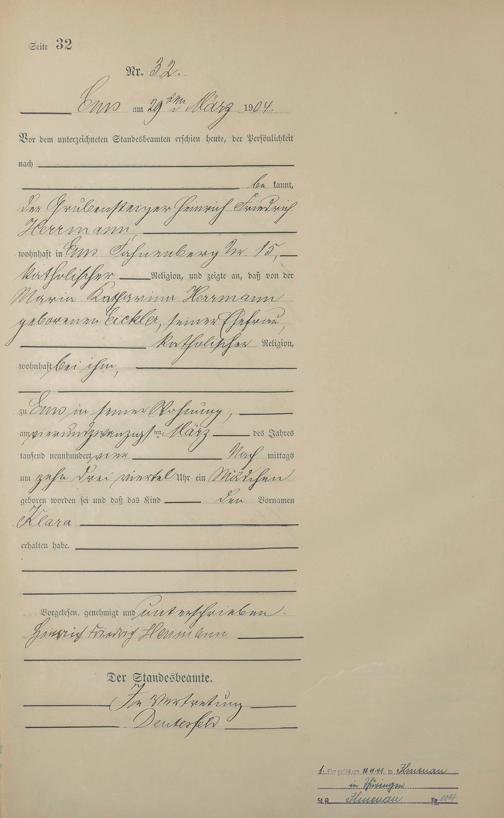 Seite 32
Nr. 32.
Ems am 29ten März 1904.
Vor dem unterzeichneten Standesbeamten erschien heute, der Persönlichkeit
nach
be kannt,
der Grubensteiger Heinrich Friedrich
Herrmann,
wohnhaft in Ems Nr. 15,
katholischer Religion, und zeigte an, daß von der
Maria Katharina Herrmann
geborenen Eickler, seiner Ehefrau,
katholischer Religion,
wohnhaft bei ihm,
zu Ems in seiner Wohnung,
am vierundzwanzigsten März des Jahres
tausend neunhundert vier Nach mittags
um zehn drei viertel Uhr ein Mädchen
geboren worden sei und daß das Kind den Vornamen
Klara
erhalten habe.
Vorgelesen, genehmigt und unterschrieben.
Heinrich Friedrich Herrmann
Der Standesbeamte.
In Vertretung
in Ilmenau
in Thüringen
St.A. Ilmenau